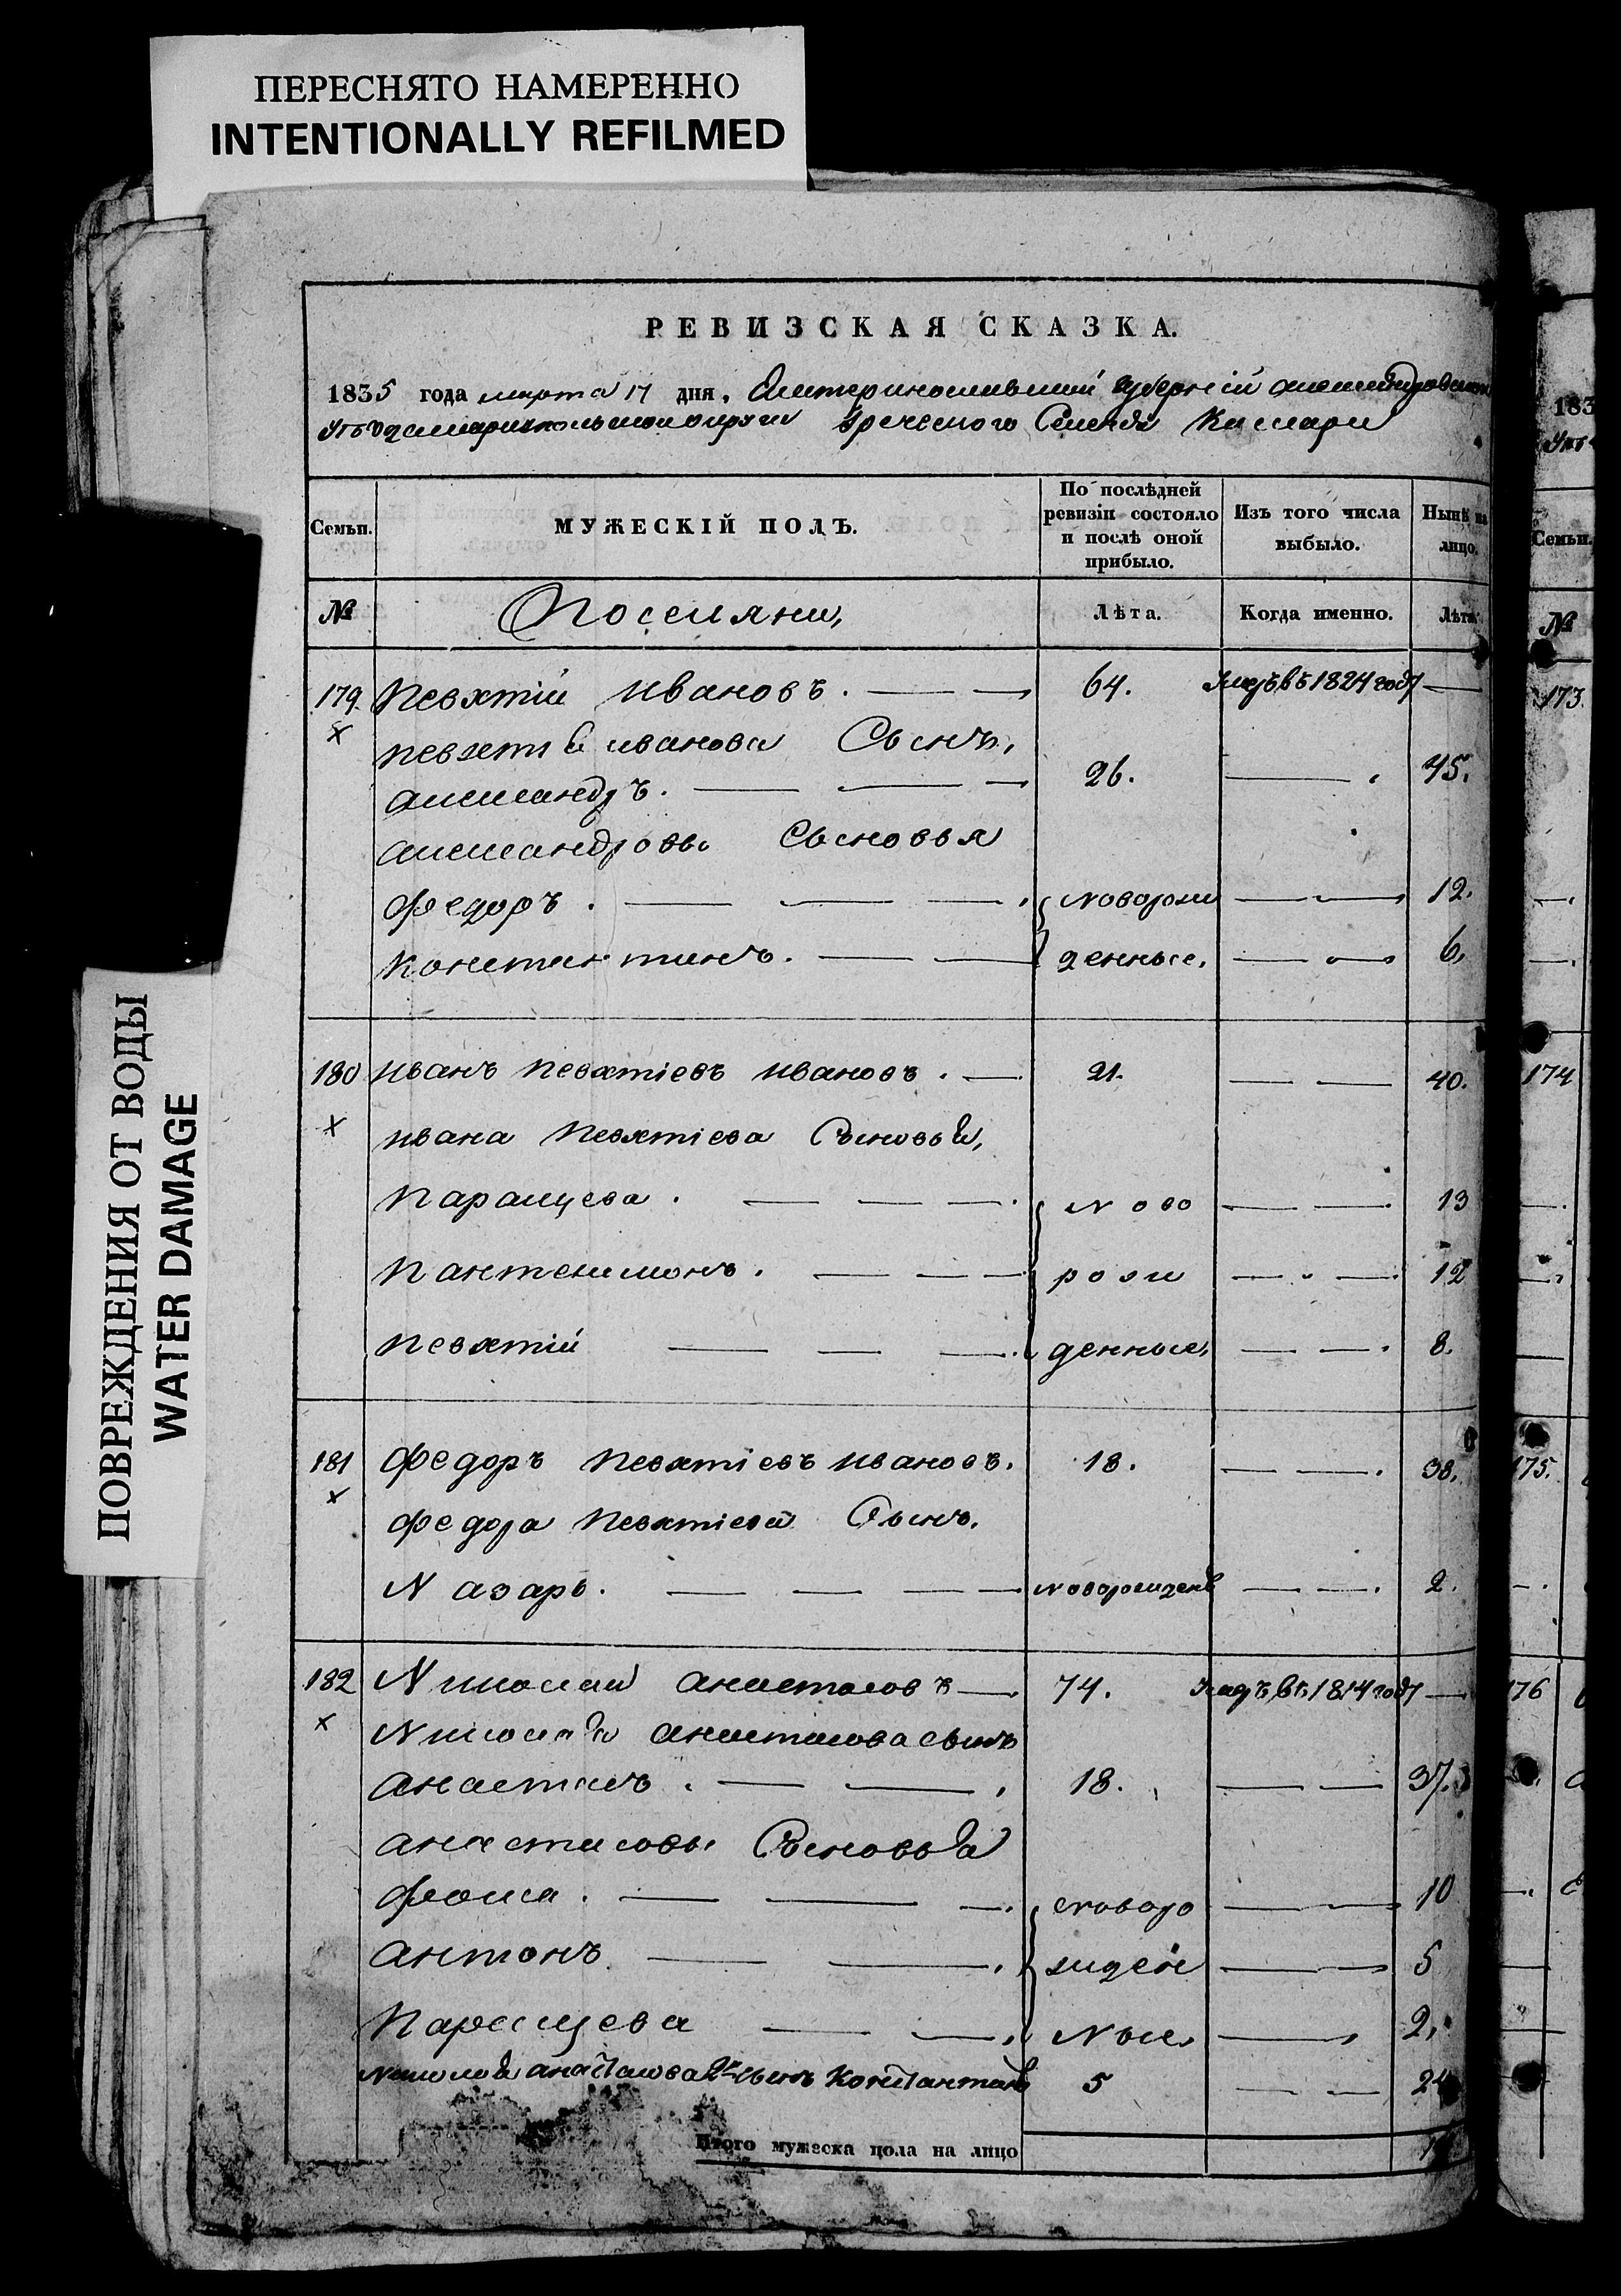 ПЕРЕСНЯТО НАМЕРЕННО
INTENTIONALLY REFILMED
ПОВРЕЖДЕНИЯ ОТ ВОДЫ
WATER DAMAGE
РЕВИЗСКАЯ СКАЗКА.
1835 года марта 17 дня, Екатеринославской губерніи Александровского
Уѣзда Мариупольского округа Греческого Селенія
Семьи. МУЖЕСКІЙ ПОЛЪ. По послѣдней ревизіи состояло и послѣ оной прибыло. Изъ того числа выбыло. Нынѣ на лицо.
№ Поселяне, Лѣта. Когда именно. Лѣта.
179 Певхтій Ивановъ. 64. Умеръ въ 1824 году
Иванова Сынъ,
Александръ. 26. 45.
Александровы Сыновья
Федоръ. новорож 12.
Константинъ. денные, 6.
180 Иванъ Певхтіевъ Ивановъ. 21. 40.
Ивана Певхтіева Сыновья,
Параскева. ново 13
Пантелимонъ. рож 12
Певхтій денные, 8.
181 Федоръ Певхтіевъ Ивановъ. 18. 38.
Федора Певхтіева Сынъ.
Назаръ. новорожденъ 2.
182 Николай Анастасовъ 74. Умеръ въ 1814 году
Николая Анастасова сынъ
Анастасъ. 18. 37.
Анастасовы Сыновья
Фома. новоро 10
Антонъ. жден 5
Параскева ные 2.
Николая Анастасова 2й сынъ Константинъ 5 24
Итого мужеска пола на лицо
183
Семьи.
№
173.
174
175.
176